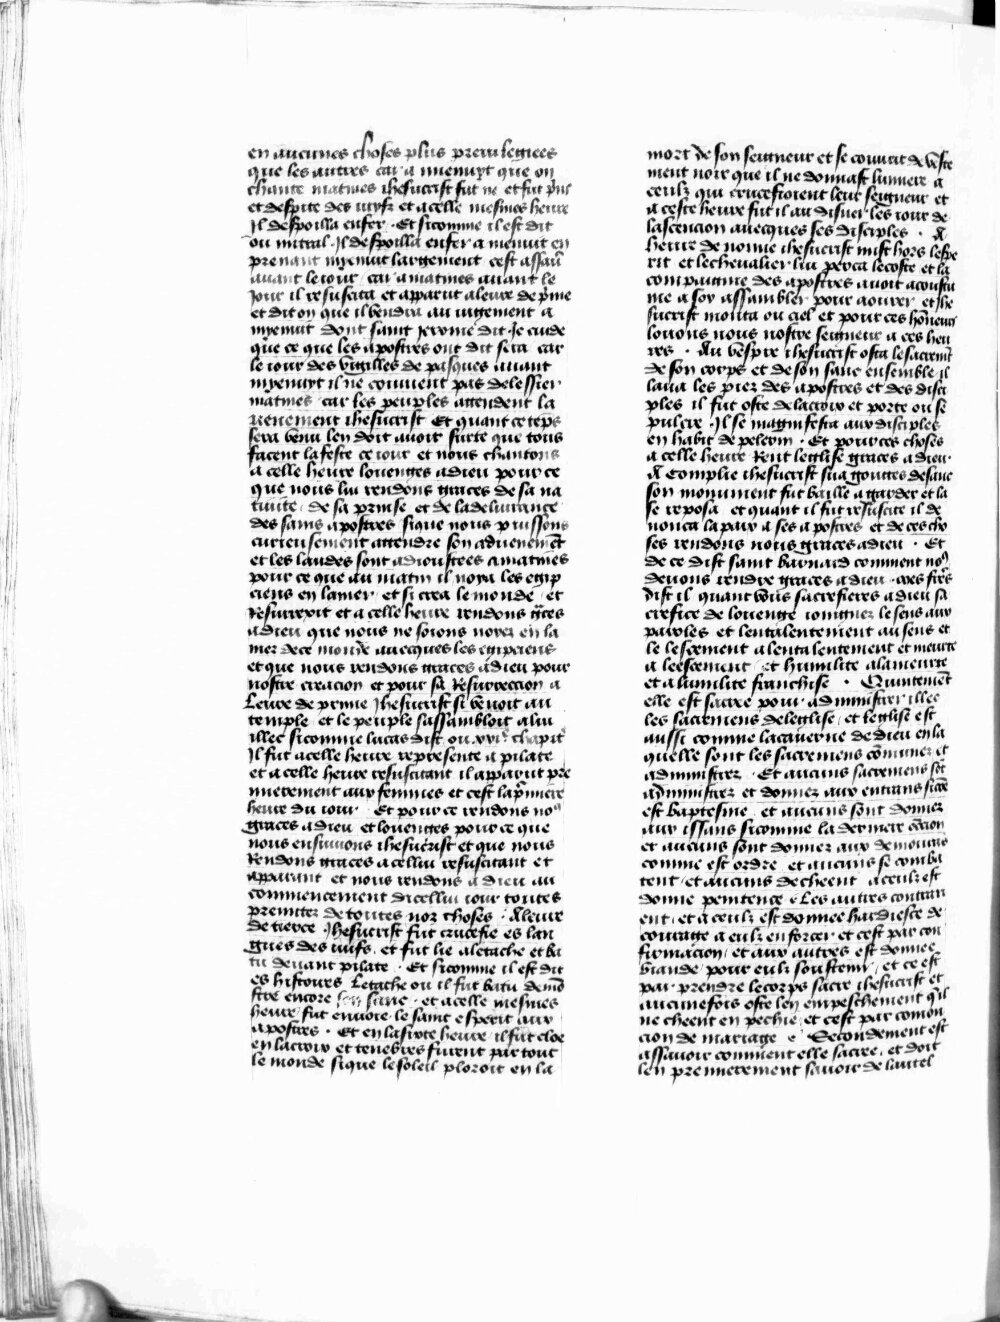 en aucunes choses plus preuilegiees
que les autres car a mienuyt que on
chante matines ihesucrist fut ne et fut pris
et despite des iuyfz et a celle mesmes heure
Il despoilla enfer · Et sicomme il est dit
ou mitral · Il despoilla enfer a mienuit en
prenant myenuit largement cest assau
auant le iour car a matines auant le
Jour il resuscita et apparut a leure de pme
et dit on que il vendra au iugement a
myenuit dont saint Jerome dit Je cuide
que ce que les apostres ont dit sera car
le iour des vigilles de pasques auant
myenuyt il ne conuient pas delessier
matines car les peuples attendent la
uenement ihesucrist Et quant ce teps
sera venu len doit auoir surte que tous
facent la feste ce iour et nous chantons
a celle heure louenges a dieu pour ce
que nous lui rendons graces de sa na
tiuite de sa prinse et de la deliurance
des sains apostres Si que nous puissons
curieusement attendre son aduenemet
et les laudes sont adioustees a matines
pour ce que au matin il noya les egip
ciens en la mer et si crea le monde et
Resurrexit et a celle heure rendons gces
a dieu que nous ne soions noyez en la
mer de ce monde auecques les egipciens
et que nous rendons graces a dieu pour
nostre creacion et pour sa Resurrection a
Leure de prime Ihesucrist si venoit au
temple et le peuple sassambloit a lui
illec sicomme lucas dist ou .xxi. chapit
Il fut a celle heure represente a pilate
et a celle heure resuscitant il apparut pre
mierement aux femmes et cest la pmiere
heure du iour · Et pour ce rendons no9
graces a dieu et louenges pour ce que
nous ensuiuons ihesucrist et que nous
Rendons graces a cellui resuscitant et
apparant et nous rendons a dieu au
commencement dicellui iour toutes
premices de toutes noz choses · A leure
de tierce Ihesucrist fut crucefie es lan
gues des iuifs et fut lie a lestache et ba
tu deuant pilate · Et sicomme il est dit
es histoires Lestache ou il fut batu demo
stre encore son sanc · et a celle mesmes
heure fut enuoie le saint esperit aux
apostres · Et en la sixte heure il fut cloe
en la croix et tenebres furent par tout
le monde si que le soleil ploroit en la
mort de son seigneur et se couurit de veste
ment noir que il ne donnast lumiere a
ceulz qui crucefioient leur seigneur et
a ceste heure fut il au disner les iour de
lascencion auecques ses disciples · A
heure de nonne ihesucrist mist hors lespe
rit et le cheualier lui perca le coste et la
compaignie des apostres auoit acoustu
me a soy assambler pour aourer et ihe
sucrist monta ou ciel et pour ces honeurs
louons nous nostre seigneur a ces heu
res · Au vespre ihesucrist osta le sacremt
de son corps et de son sanc ensemble il
laua les piez des apostres et des disci
ples il fut oste de la croix et porte ou se
pulcre · Il se magnifesta aux disciples
en habit de pelerin · Et pour ces choses
a celle heure Rent leglise graces a dieu
A Complie ihesucrist sua gouttes de sanc
son monument fut baille a garder et la
se reposa et quant il fut resuscite il de
nonca la paix a ses apostres et de ces cho
ses rendons nous graces a dieu · Et
de ce dist saint barnard comment no9
deuons rendre graces a dieu · mes fres
dist il quant vous sacrefieres a dieu sa
crefice de louenge ioingnez le sens aux
paroles et lentalentement au sens et
le lescement a lentalentement et meurte
a leescement et humilite a la meurte
et a lumilite franchise · Quintement
elle est sacre pour administrer illec
les sacremens de leglise et leglise est
aussi comme la cauerne de dieu en la
quelle sont les sacremens comuniez et
administrez · Et aucuns sacremens sot
administrez et donnez aux entrans sicoe
est baptesme et aucuns sont donnez
aux issans sicomme la derniere
et aucuns sont donnez aux demourans
comme est ordre et aucuns se comba
tent et aucuns decheent a ceulz est
donne penitence · Les autres contrari
ent et a ceulz est donnee hardiesce de
courage a eulz enforcer et cest par con
firmacion et aux autres est donnee
viande pour eulz soustenir et ce est
par prendre le corps sacre ihesucrist et
aucunefois oste len empeschement quil
ne cheent en pechie et cest par comon
cion de mariage · Secondement est
assauoir comment elle sacre et doit
len premierement sauoir de lautel